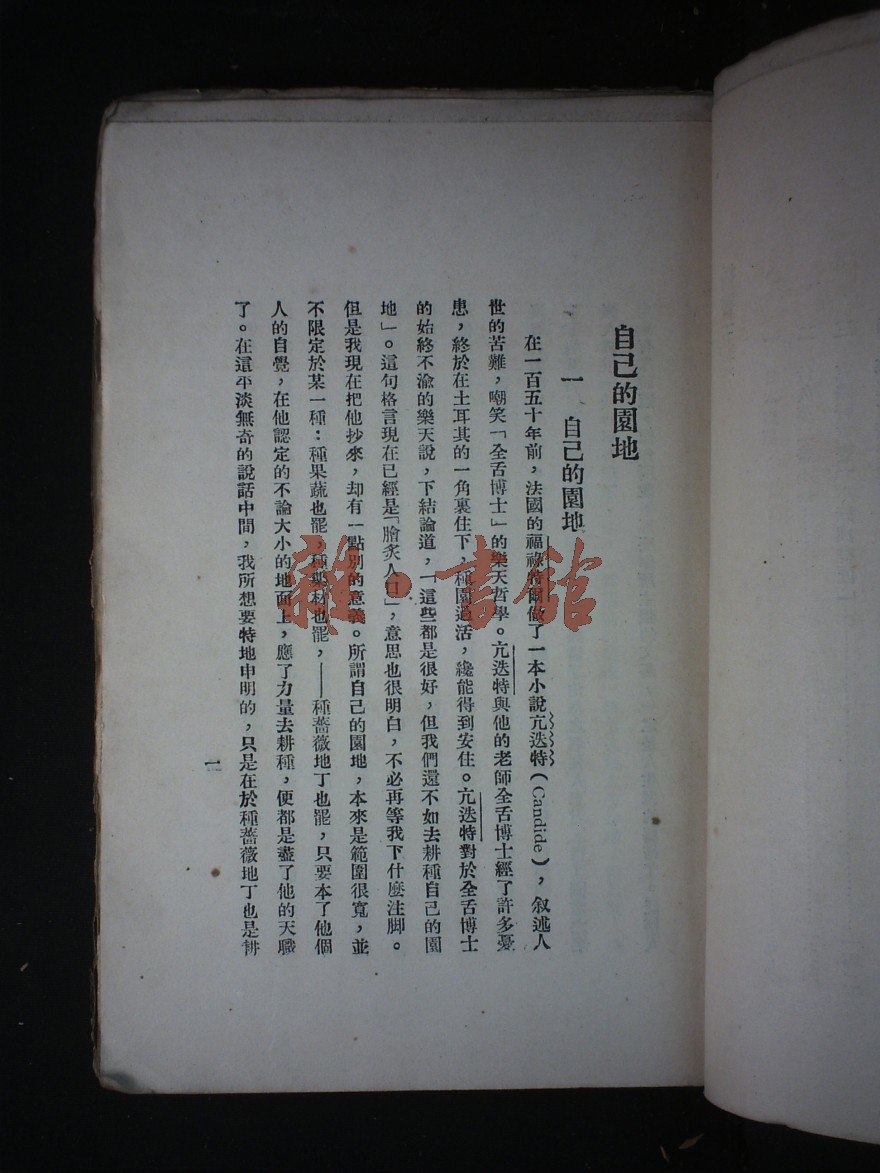 自己的園地
一　自己的園地
在一百五十年前，法國的福祿特爾做了一本小說亢迭特(Candide)，叙述人
世的苦難，嘲笑「全舌博士」的樂天哲學。亢迭特與他的老師全舌博士經了許多憂
患，終於在土耳其的一角裏住下，種園過活，纔能得到安住。亢迭特對於全舌博士
的始終不渝的樂天說，下結論道，「這些都是很好，但我們還不如去耕種自己的園
地」。這句格言現在已經是「膾炙人口」，意思也很明白，不必再等我下什麼注脚。
但是我現在把他抄來，却有一點別的意義。所謂自己的園地，本來是範圍很寬，並
不限定於某一種：種果蔬也罷，種藥材也罷，——種薔薇地丁也罷，只要本了他個
人的自覺，在他認定的不論大小的地面上，應了力量去耕種，便都是盡了他的天職
了。在這平淡無奇的說話中間，我所想要特地申明的，只是在於種薔薇地丁也是耕
一
雜·書館